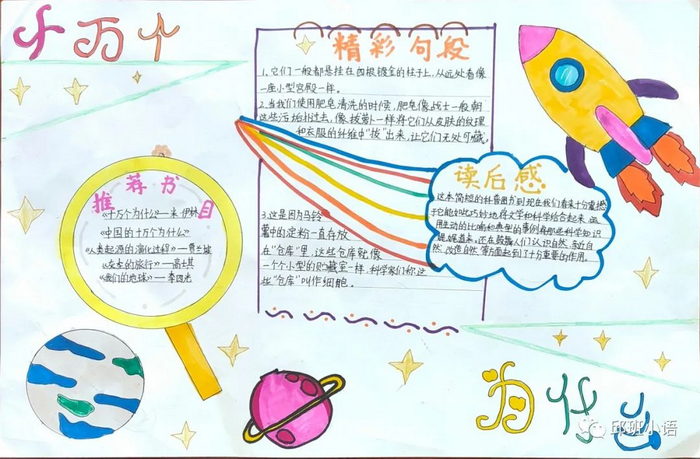 十万个
精彩句段
1、它们一般都悬挂在四根镀金的柱子上,从远处看像
一座小型宫殿一样。
2、当我们使用肥皂清洗的时候,肥皂像战士一般朝
这些污垢扑过去,像拔萝卜一样将它们从皮肤的纹理
和衣服的纤维中“拔”出来,让它们无处可藏。
3、这是因为马铃
薯中的淀粉一直存放
在“仓库”里,这些仓库就像
一个个小型的贮藏室一样,科学家们称这
些“仓库”叫作细胞。
推荐书目
《十万个为什么》—米·伊林
《中国的十万个为什么》
《人类起源的演化过程》—贾兰坡
《灰尘的旅行》—高士其
《我们的地球》—李四光
读后感
这本简短的科普图书到现在我们看来十分震撼
于它能如此巧妙地将文学和科学结合起来,运
用生动的比喻和典型的事例将那些科学知识
娓娓道来,还在鼓舞人们认识自然,
改造自然等方面起到了十分重要的作用。
为什么
邱班小语